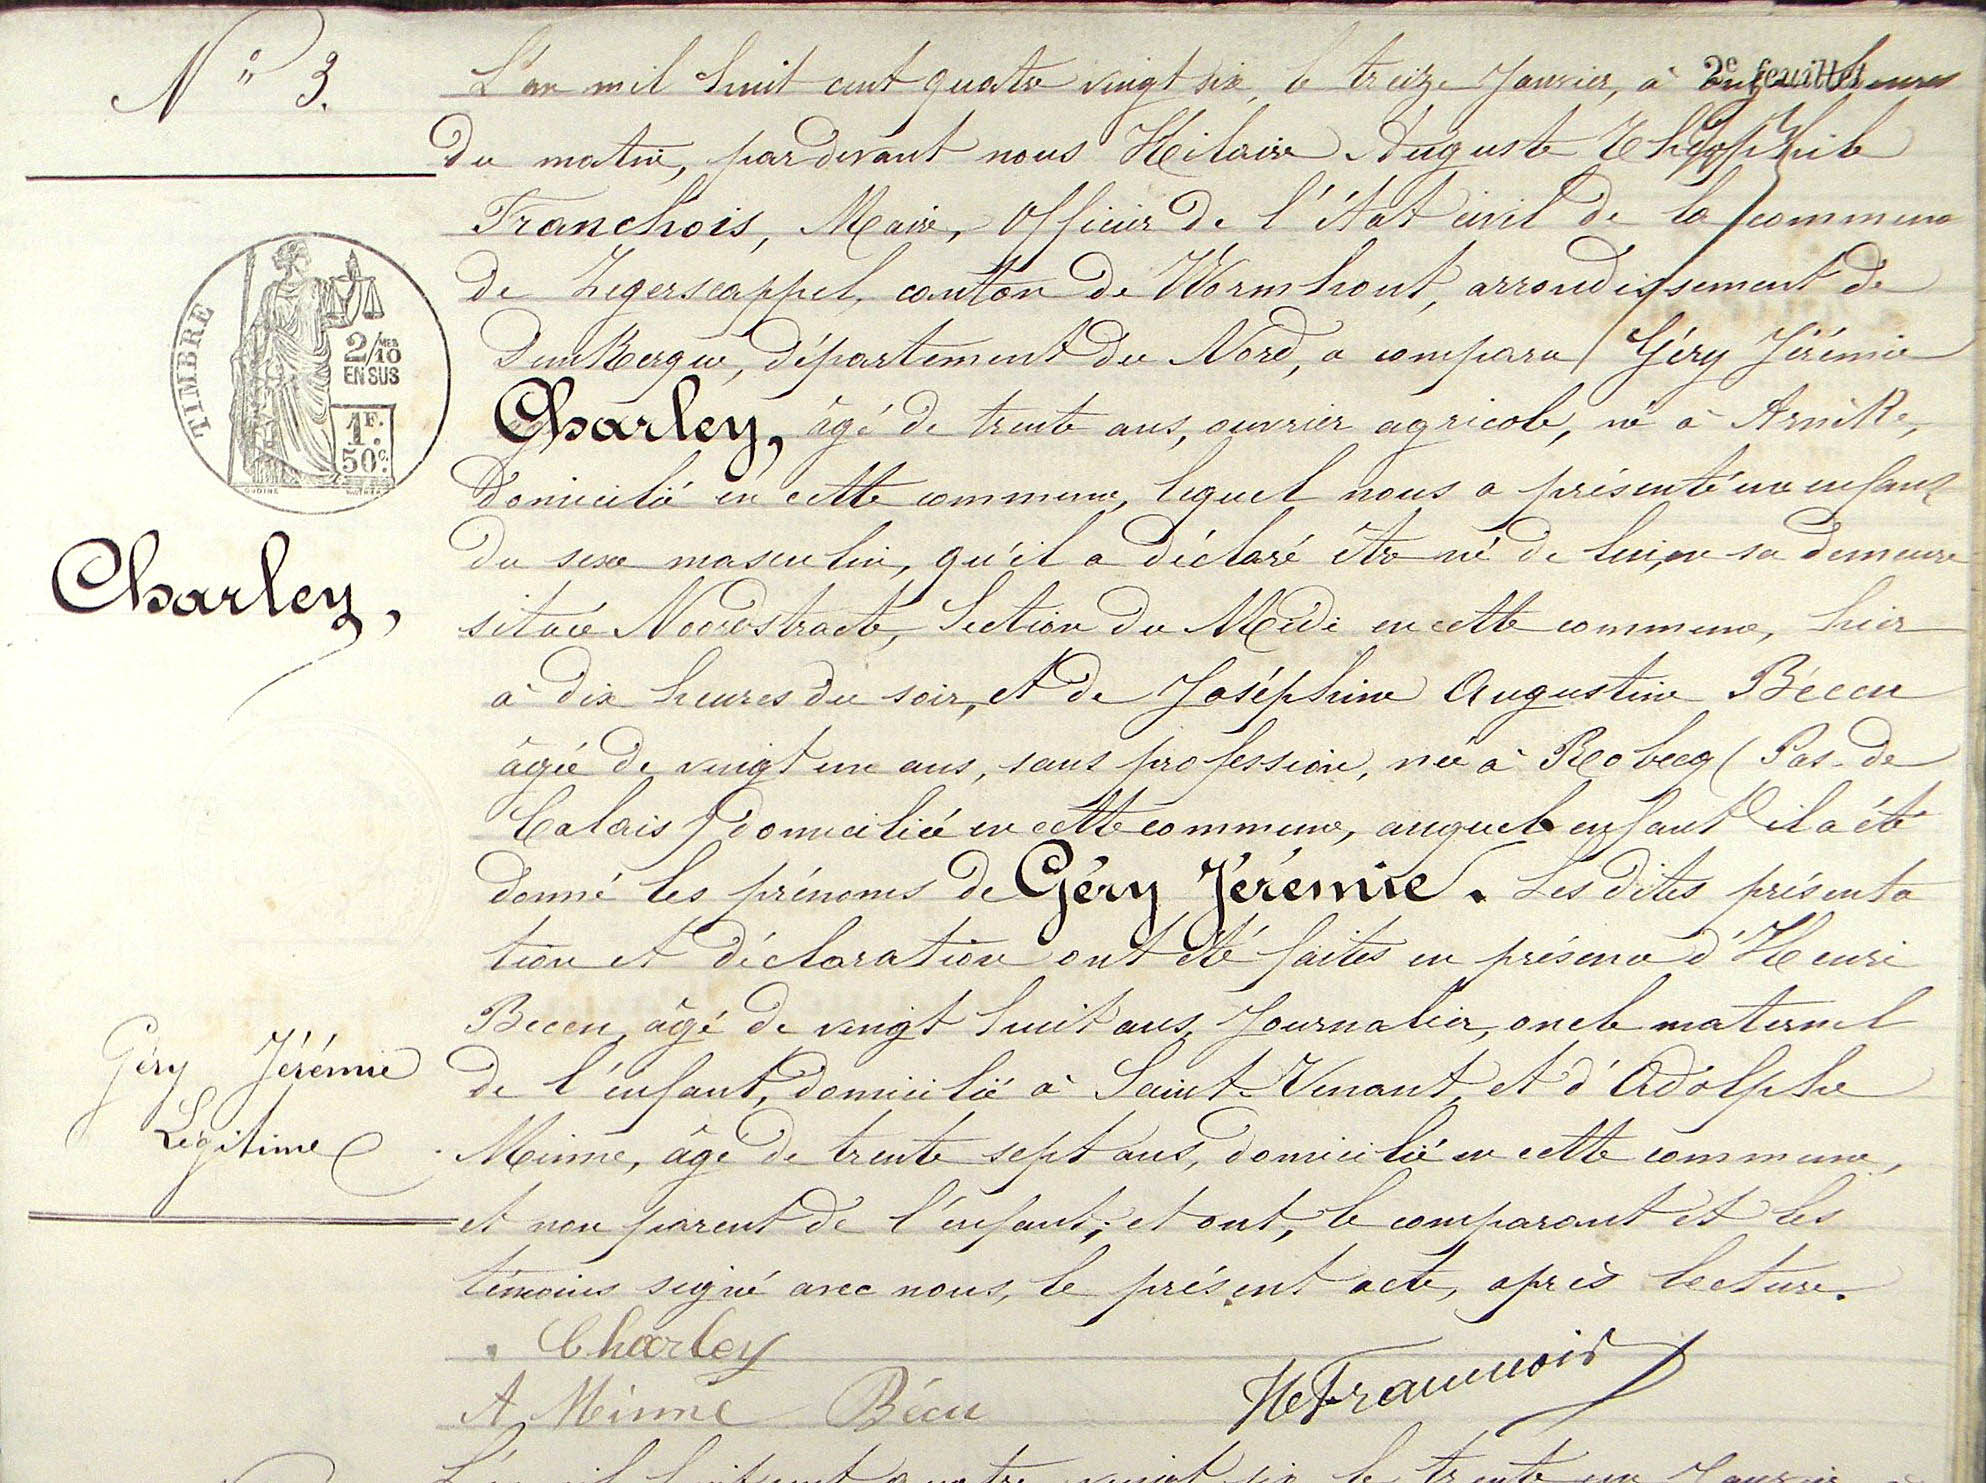 N° 3.
2e feuillet
L'an mil huit cent quatre vingt six, le treize Janvier, à onze heures
du matin, pardevant nous Hilaire Auguste Théophile
Franchois, Maire, Officier de l'état civil de la commune
de Zegerscappel, canton de Wormhout, arrondissement de
Dunkerque, département du Nord, a comparu Géry Jérémie
Charley, âgé de trente ans, ouvrier agricole, né à Arnèke,
domicilié en cette commune, lequel nous a présenté un enfant
du sexe masculin, qu'il a déclaré être né de lui, en sa demeure
située Noordstraete, Section du Midi en cette commune, hier
à dix heures du soir, et de Joséphine Augustine Bécu
âgée de vingt un ans, sans profession, née à Robecq (Pas-de
Calais) domiciliée en cette commune, auquel enfant il a été
donné les prénoms de Géry Jérémie. Les dites présenta
tion et déclaration ont été faites en présence d'Henri
Becu, âgé de vingt huit ans, Journalier, oncle maternel
de l'enfant, domicilié à Saint-Venant, et d'Adolphe
Minne, âgé de trente sept ans, domicilié en cette commune,
et non parent de l'enfant; et ont, le comparant et les
témoins signé avec nous, le présent acte, après lecture.
Charley
A Minne Bécu
TIMBRE
2/10 MES
EN SUS
1F.
50c.
OUDINÉ
Charley,
Géry Jérémie
Légitime
L'an mil huit cent quatre vingt six le trente un Janvier